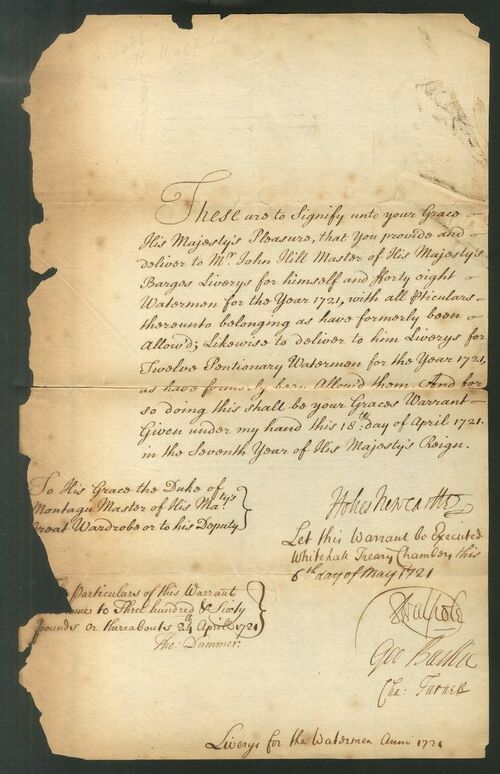 Walpole
These are to Signify unto your Grace
His Majesty's Pleasure, that You provide and
deliver to Mr. John Hill Master of His Majesty's
Barges Liverys for himself and fforty eight
Watermen for the Year 1721, with all pticulars
thereunto belonging as have formerly been
Allow'd; Likewise to deliver to him Liverys for
Twelve Pentionary Watermen for the Year 1721,
as have formerly been Allow'd them. And for
so doing this shall be your Graces Warrant
Given under my hand this 18th. day of April 1721.
in the Seventh Year of His Majesty's Reign.
To His Grace the Duke of
Montagu Master of His Ma:tys
Great Wardrobe or to his Deputy
Holles Newcastle
Let this Warrant be Executed
Whitehall Treary Chambers this
6th day of May 1721
Particulars of this Warrant
to Three hundred & Sixty
pounds or thereabouts 24 April 1721
Tho: Dummer.
RWalpole
Geo Baillie
Cha: Turner
Liverys for the Watermen Anno 1721